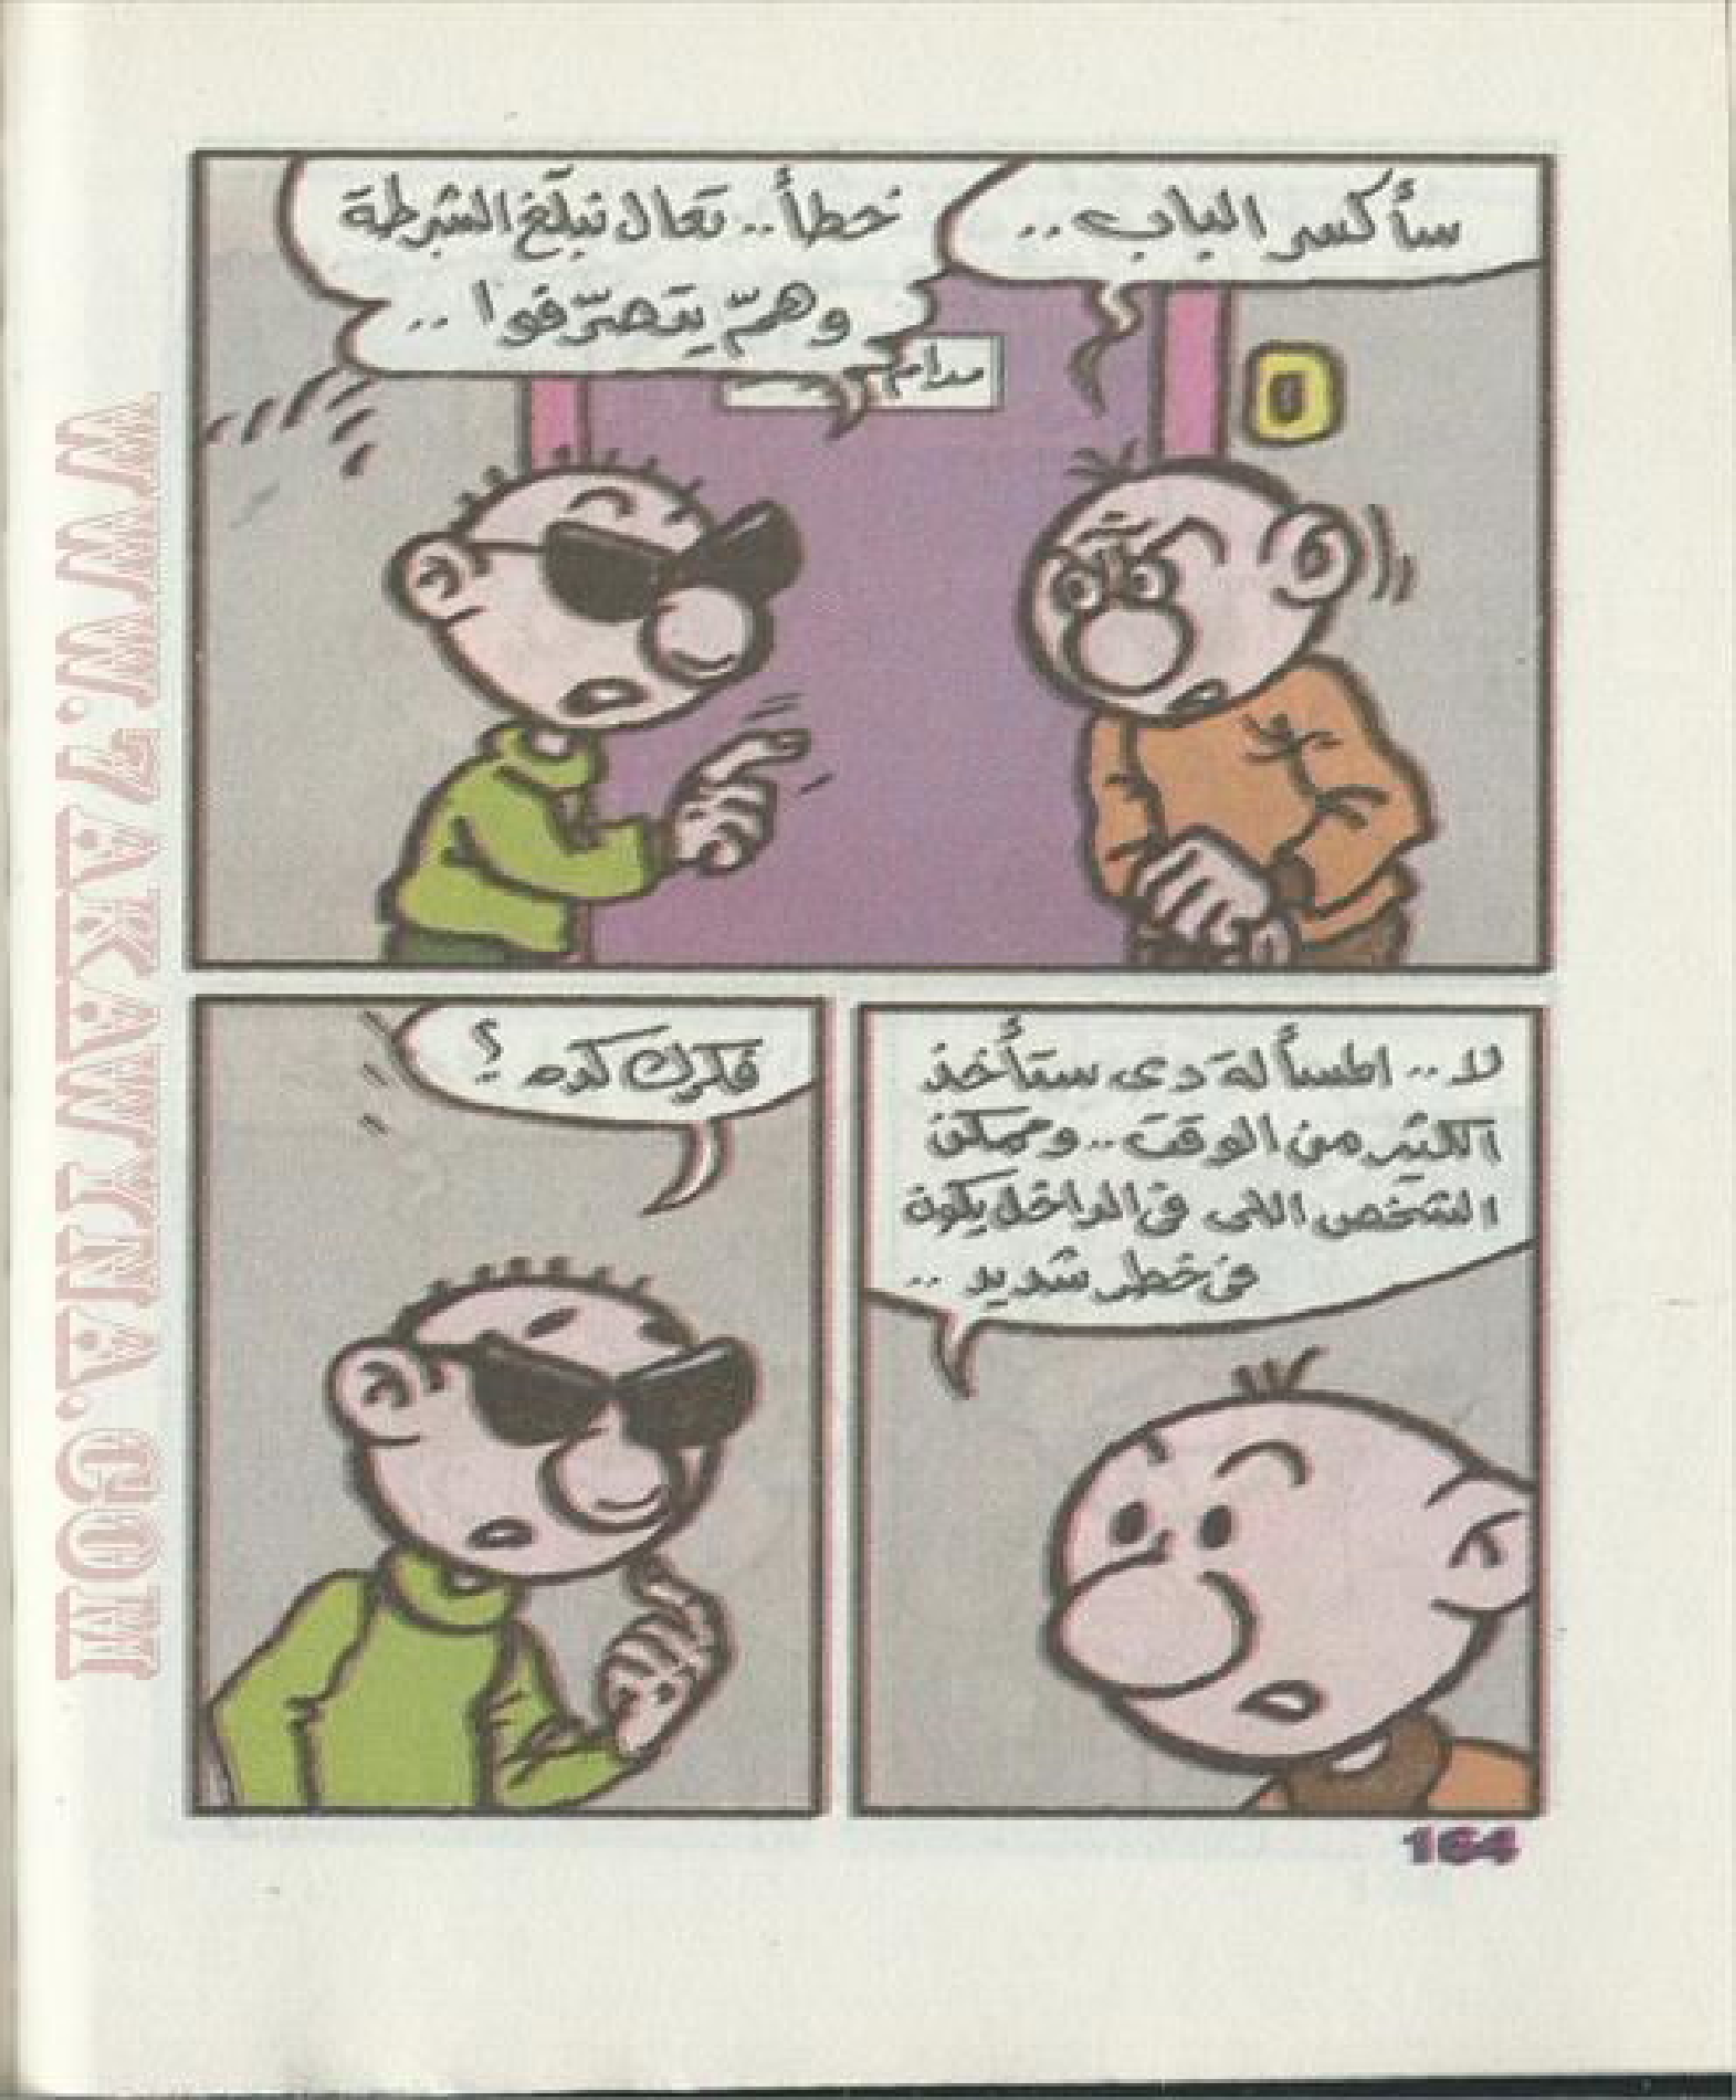 سأكسر الباب ..
خطأ .. تعال نبلّغ الشرطة
وهمّ يتصرّفوا ..
مدام
لا .. المسألة دى ستأخذ
الكثير من الوقت .. وممكن
الشخص اللى فى الداخل يكون
فى خطر شديد ..
فكرك كده ؟
164
WWW.7AKAWTNA.COM